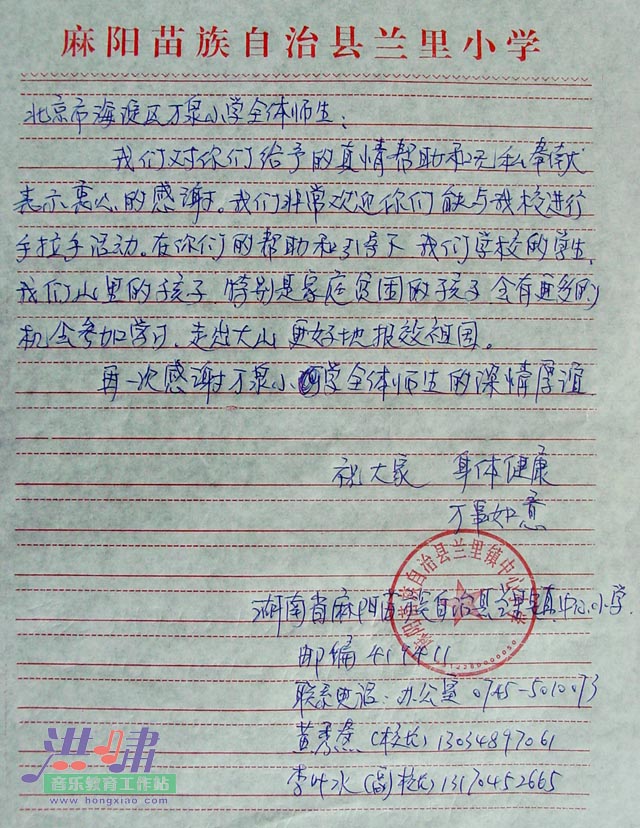 麻阳苗族自治县兰里小学
北京市海淀区万泉小学全体师生:
我们对你们给予的真情帮助和无私奉献
表示衷心的感谢。我们非常欢迎你们能与我校进行
手拉手活动。在你们的帮助和引导下 我们学校的学生,
我们山里的孩子 特别是家庭贫困的孩子 会有更多的
机会参加学习,走出大山 更好地报效祖国。
再一次感谢万泉小学全体师生的深情厚谊
祝大家 身体健康
万事如意
湖南省麻阳苗族自治县兰里镇中心小学
邮编 419411
联系电话: 办公室 0745-5010073
黄秀(校长) 13034897061
李叶水 (副校长) 13170452665
麻阳苗族自治县兰里镇中心小学
洪啸
音乐教育工作站
www.hongxiao.com